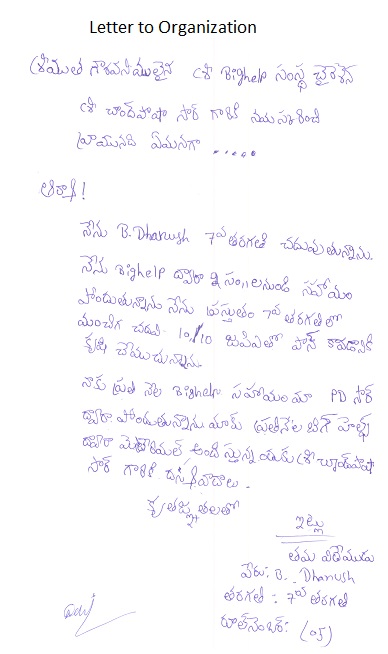 Letter to Organization
శ్రీయుత గౌరవనీయులైన శ్రీ Bighelp సంస్థ చైర్మెన్
శ్రీ చాంద్ పాషా సార్ గారికి నమస్కరించి
వ్రాయునది ఏమనగా .....
నేను B. Dhanush 7వ తరగతి చదువుతున్నాను.
నేను Bighelp ద్వారా సం॥లనుండి సహాయం
పొందుతున్నాను నేను ప్రస్తుతం 7వ తరగతిలో
మంచిగ చదివి 10/10 జిపిఎతో పాస్ కావడానికి
కృషి చేయుచున్నాను.
నాకు ప్రతి నెల Bighelp సహాయం మా PD సార్
ద్వారా పొందుతున్నాను మాకు ప్రతినెల బిగ్ హెల్ప్
ద్వారా మెటీరియల్ అందిస్తున్న శ్రీ చాంద్ పాషా
సార్ గారికి ధన్యవాదాలు.
కృతజ్ఞతలతో
ఇట్లు
తమ విధేయుడు
పేరు: B. Dhanush
తరగతి: 7వ తరగతి
రూల్ నెంబర్: (05)